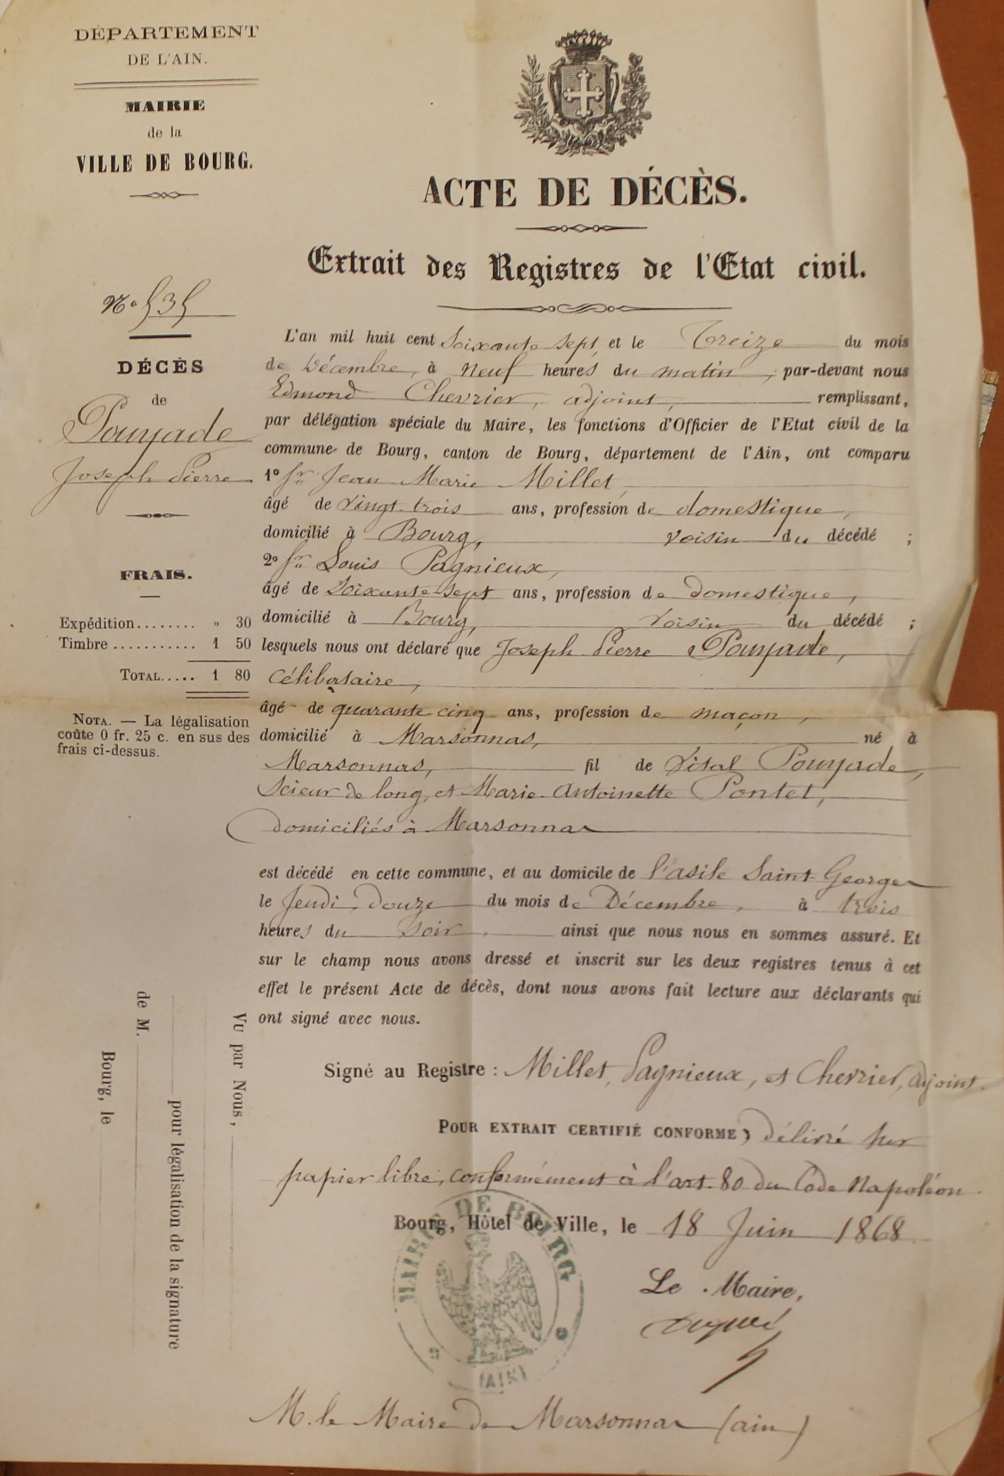 DÉPARTEMENT
DE L'AIN.
MAIRIE
de la
VILLE DE BOURG.
ACTE DE DÉCÈS.
Extrait des Registres de l'Etat civil.
N° 535
DÉCÈS
de
Pouyade
Joseph Pierre
FRAIS.
Expédition........ " 30
Timbre........... 1 50
TOTAL..... 1 80
NOTA. — La légalisation
coûte 0 fr. 25 c. en sus des
frais ci-dessus.
L'an mil huit cent soixante sept, et le Treize du mois
de Décembre, à Neuf heures du matin, par-devant nous
Edmond Chevrier, adjoint, remplissant,
par délégation spéciale du Maire, les fonctions d'Officier de l'Etat civil de la
commune de Bourg, canton de Bourg, département de l'Ain, ont comparu
1° Sr Jean Marie Millet,
âgé de vingt-trois ans, profession de domestique,
domicilié à Bourg, voisin du décédé ;
2° Sr Louis Pagnieux,
âgé de soixante-sept ans, profession de domestique,
domicilié à Bourg, voisin du décédé ;
lesquels nous ont déclaré que Joseph Pierre Pouyade,
célibataire,
âgé de quarante cinq ans, profession de maçon,
domicilié à Marsonnas, né à
Marsonnas, fil de Vital Pouyade,
scieur de long, et Marie-Antoinette Pontet,
domiciliés à Marsonnas
est décédé en cette commune, et au domicile de l'asile Saint Georges
le Jeudi, douze du mois de Décembre, à trois
heures du soir, ainsi que nous nous en sommes assuré. Et
sur le champ nous avons dressé et inscrit sur les deux registres tenus à cet
effet le présent Acte de décès, dont nous avons fait lecture aux déclarants qui
ont signé avec nous.
Signé au Registre : Millet, Pagnieux, et Chevrier, adjoint.
POUR EXTRAIT CERTIFIÉ CONFORME, délivré sur
papier libre, conformément à l'art. 80 du Code Napoléon.
Bourg, Hôtel de Ville, le 18 Juin 1868
Le Maire,
MAIRIE DE BOURG
(AIN)
M. le Maire de Marsonnas (ain)
Vu par Nous,
pour légalisation de la signature
de M.
Bourg, le